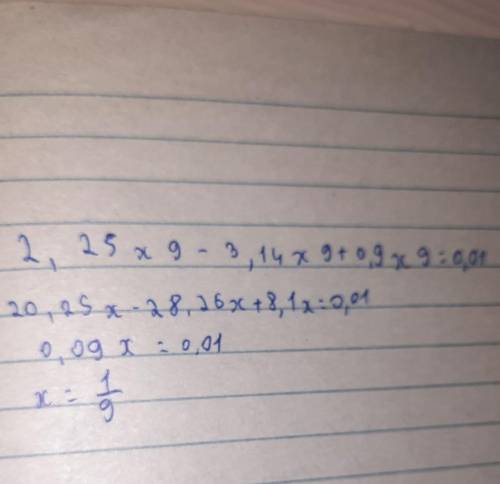 2, 25 x 9 - 3,14 x 9 + 0,9 x 9 = 0,01
20,25x - 28,26x + 8,1x = 0,01
0,09x = 0,01
x = 1/9